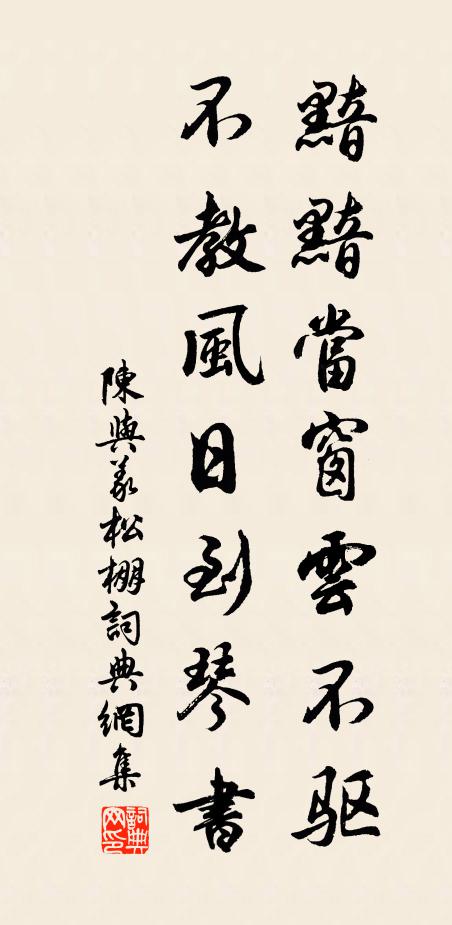 黯黯當窗雲不驱
不教風日到琴書
陳與義松棚詞典網集
詞典网印